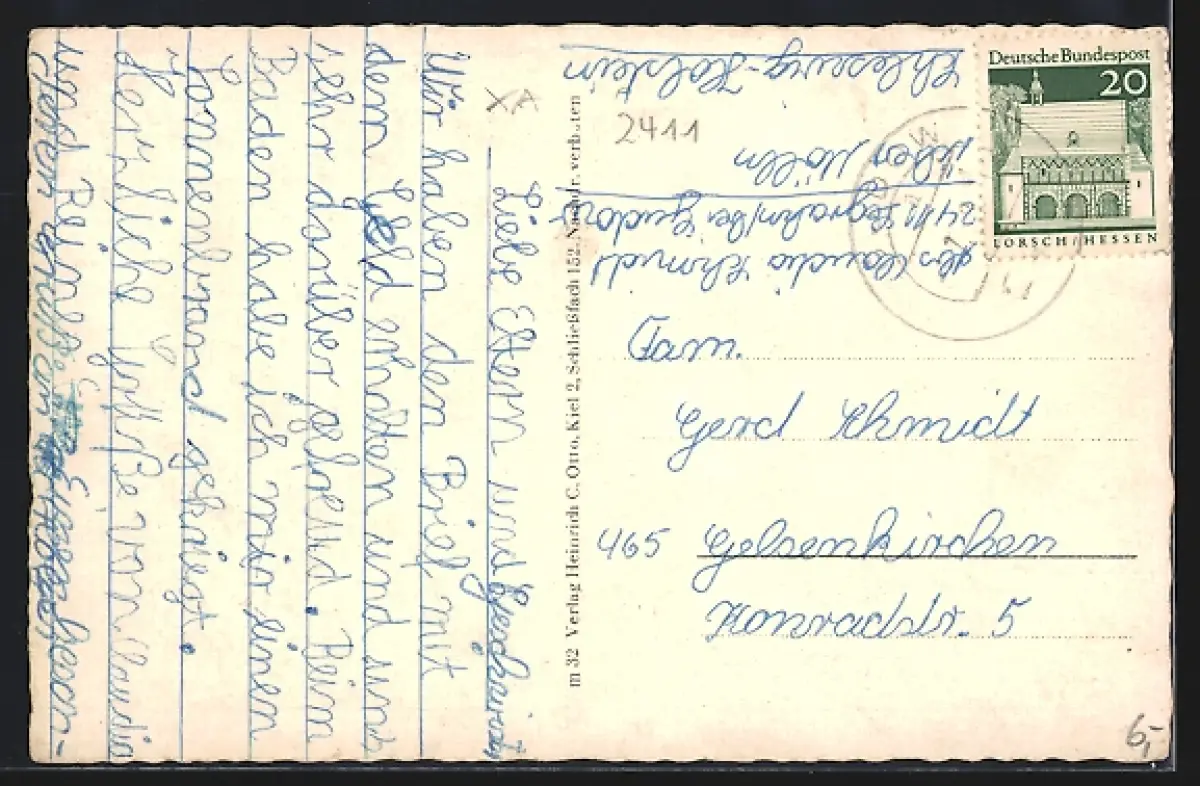 Liebe Eltern und Geschwister
Wir haben den Brief mit
dem Geld erhalten und uns
sehr darüber gefreud. Beim
Baden habe ich mir einen
Sonnenbrand gekriegt.
Herzliche Grüße von Claudia
und
m 32 Verlag Heinrich C. Otto, Kiel 2, Schließfach 152. Nachdr. verboten
XA
2411
Abs Claudia Schmidt
2411 Segrahn/bei Gudow
über Mölln
Schleswig-Holstein
Deutsche Bundespost
20
LORSCH/HESSEN
Fam.
Gerd Schmidt
465 Gelsenkirchen
Konradstr. 5
6,-